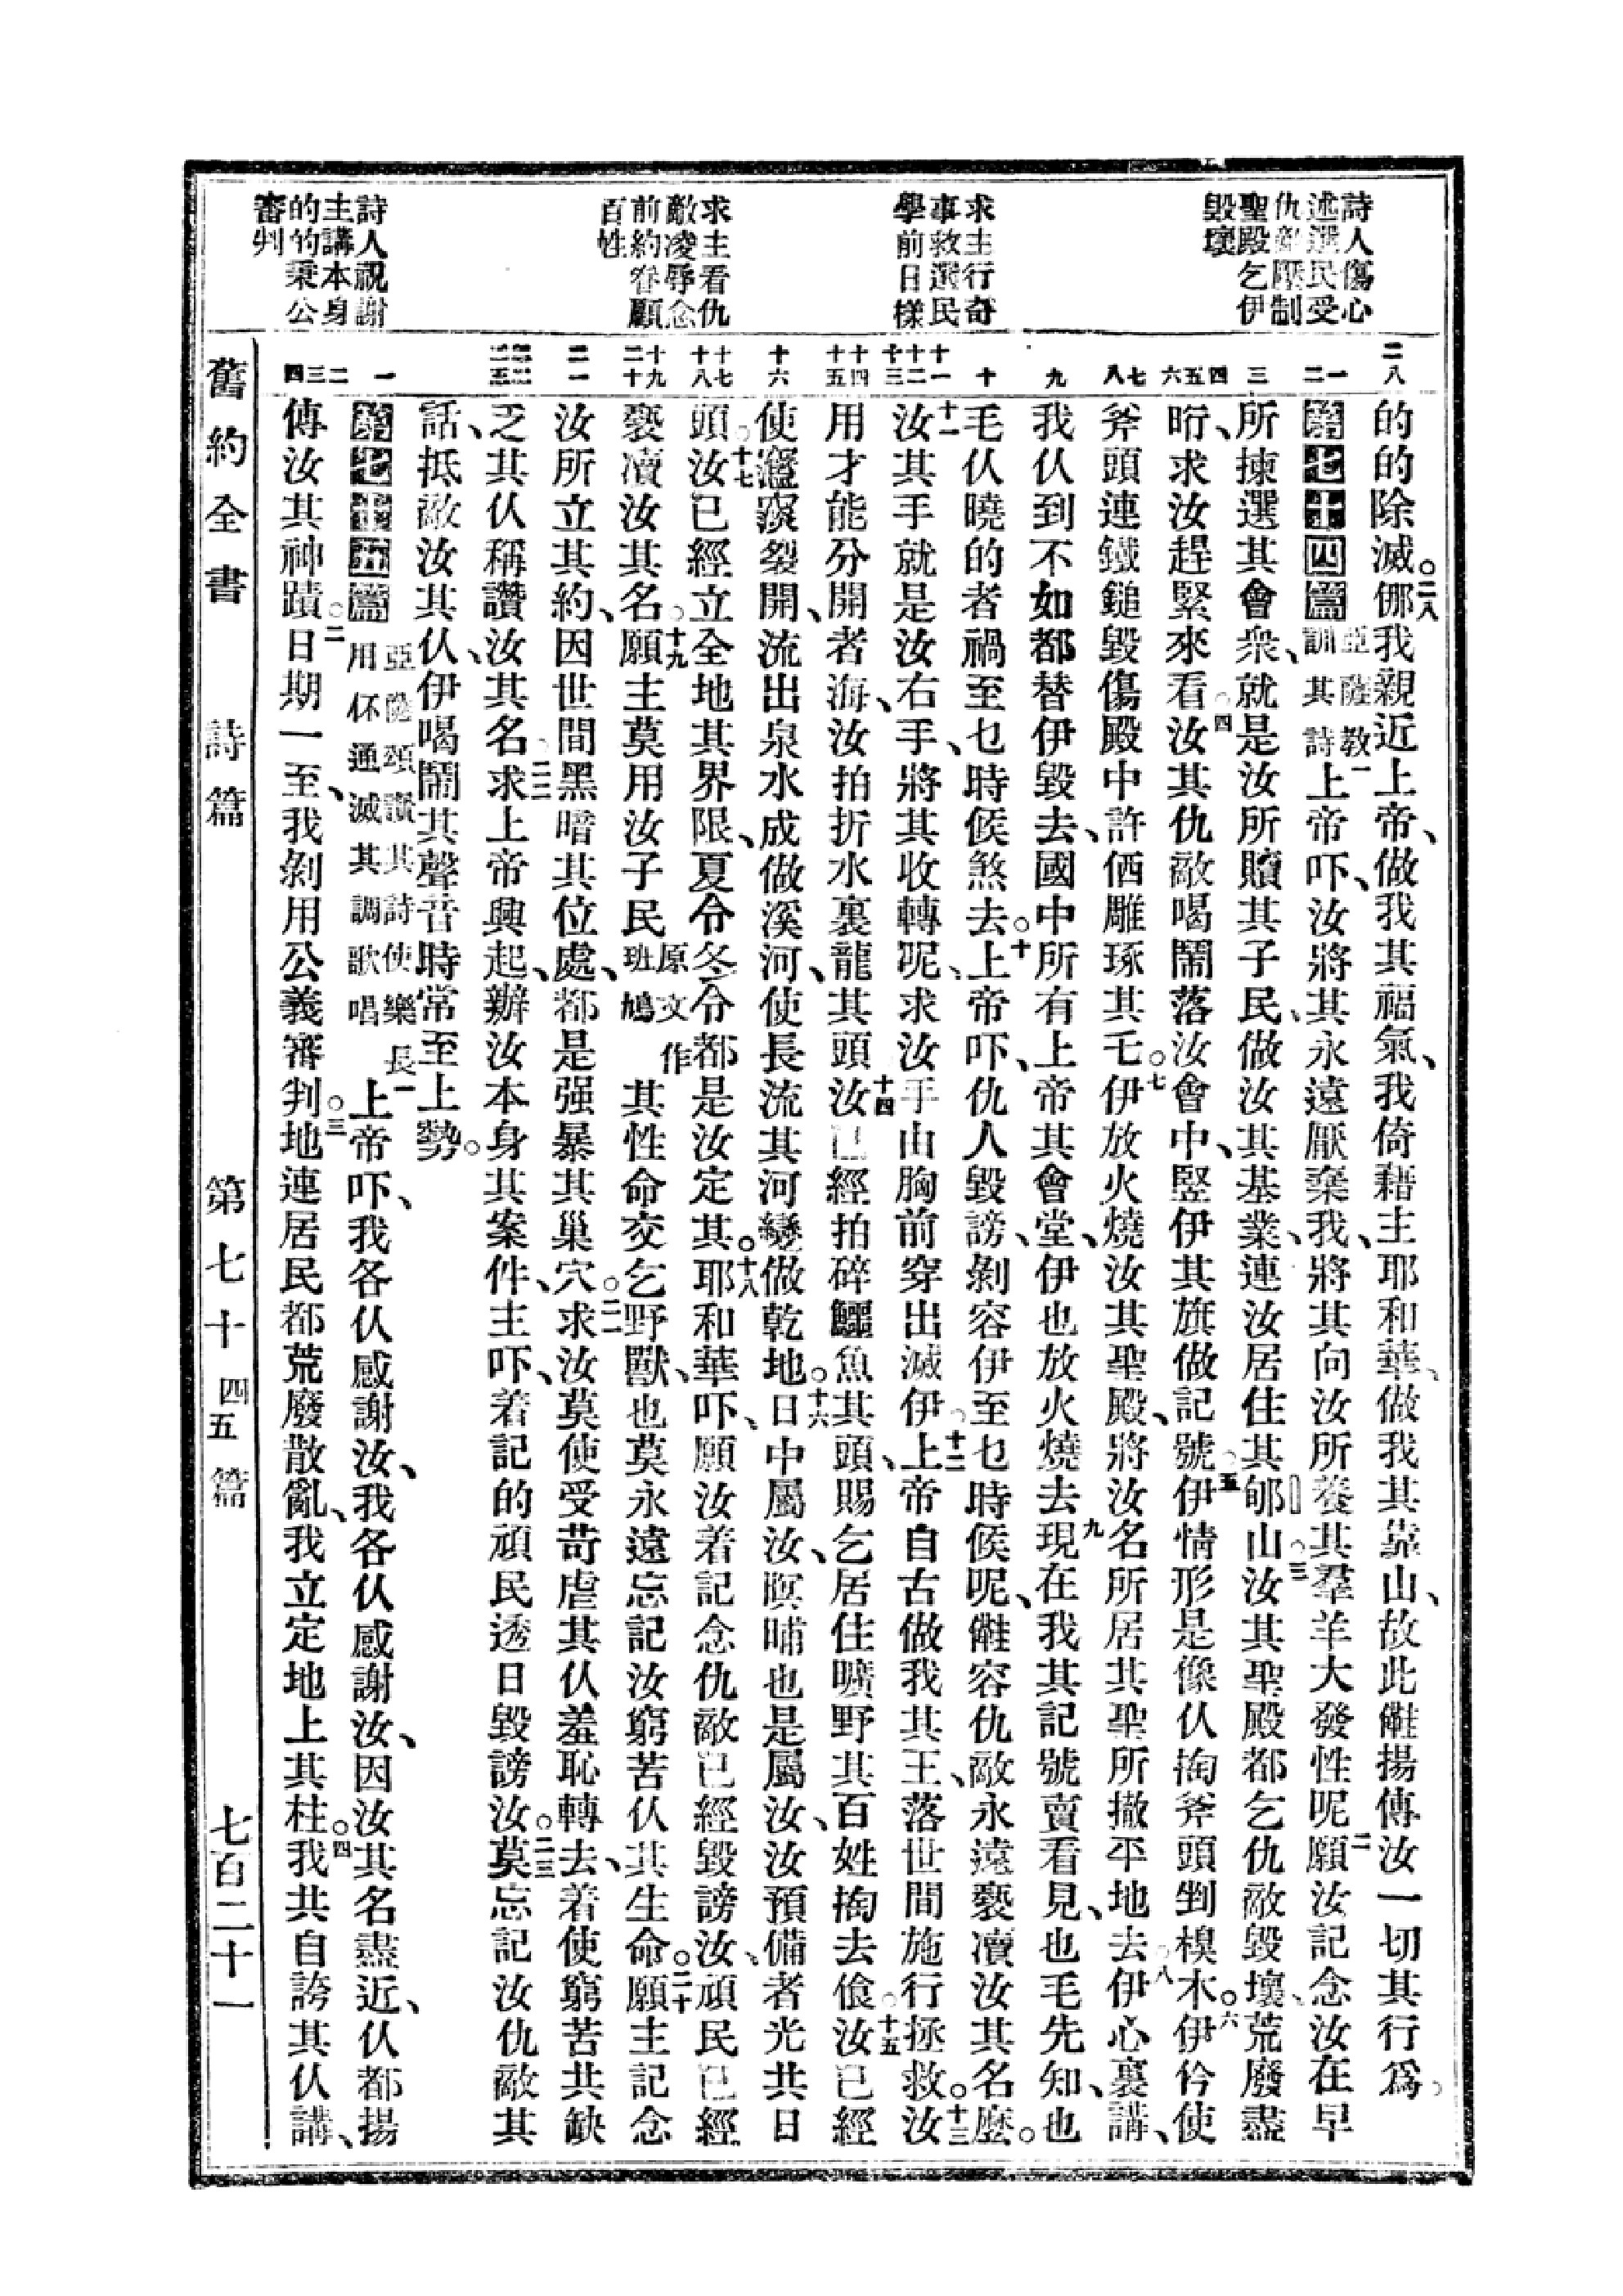 詩人傷心
述選民受
仇敵壓制
聖殿乞伊
毀壞
求主行奇
事救選民
學前日樣
求主看仇
敵凌辱念
前約眷顧
百姓
詩人祝謝
主講本身
的的秉公
審判
二八
一
二
三
四
五
六
七
八
九
十
十一
十二
十三
十四
十五
十六
十七
十八
十九
二十
二一
二二
二三
的的除滅。二八倻我親近上帝、做我其福氣、我倚藉主耶和華、做我其靠山、故此儺揚傳汝一切其行爲。
第七十四篇 亞薩教訓其詩 一上帝吓、汝將其永遠厭棄我、將其向汝所養其羣羊大發性呢、二願汝記念汝在早
所揀選其會衆、就是汝所贖其子民、做汝其基業、連汝居住其郇山。三汝其聖殿都乞仇敵毀壞、荒廢盡
𪨶、求汝趕緊來看。四汝其仇敵喝鬧落汝會中、竪伊其旗做記號。五伊情形是像仈掏斧頭剉樕木。六伊仱使
斧頭連鐵鎚毀傷殿中許𠉣雕琢其乇。七伊放火燒汝其聖殿、將汝名所居其聖所撤平地去。八伊心裏講、
我仈到不如都替伊毀去、國中所有上帝其會堂、伊也放火燒去。九現在我其記號賣看見、也毛先知、也
毛仈曉的者禍至乜時候煞去。十上帝吓、仇人毀謗、剝容伊至乜時候呢、儺容仇敵永遠褻瀆汝其名麽。
十一汝其手就是汝右手、將其收轉呢、求汝手由胸前穿出滅伊。十二上帝自古做我其王、落世間施行拯救。十三汝
用才能分開者海、汝拍折水裏龍其頭。十四汝已經拍碎鱷魚其頭、賜乞居住曠野其百姓掏去飡。十五汝已經
使竆䆲裂開、流出泉水成做溪河、使長流其河變做乾地。十六日中屬汝、暝晡也是屬汝、汝預備者光共日
頭。十七汝已經立全地其界限、夏仱冬仱都是汝定其。十八耶和華吓、願汝着記念仇敵已經毀謗汝、頑民已經
褻瀆汝其名。十九願主莫用汝子民 原文作班鳩 其性命交乞野獸、也莫永遠忘記汝窮苦仈其生命。二十願主記念
汝所立其約、因世間黑暗其位處、都是强暴其巢穴。二一求汝莫使受苛虐其仈羞恥轉去、着使窮苦共缺
乏其仈稱讚汝其名。二二求上帝興起、辦汝本身其案件、主吓、着記的頑民透日毀謗汝。二三莫忘記汝仇敵其
話、抵敵汝其仈、伊喝鬧其聲音時常至上勢。
第七十五篇 亞薩頌讚其詩使樂長用伓通滅其調歌唱 一上帝吓、我各仈感謝汝、我各仈感謝汝、因汝其名盡近、仈都揚
傳汝其神蹟。二日期一至、我剝用公義審判。三地連居民都荒廢散亂、我立定地上其柱。四我共自誇其仈講、
一
二
三
四
舊約全書
詩篇
第七十四五篇
七百二十一